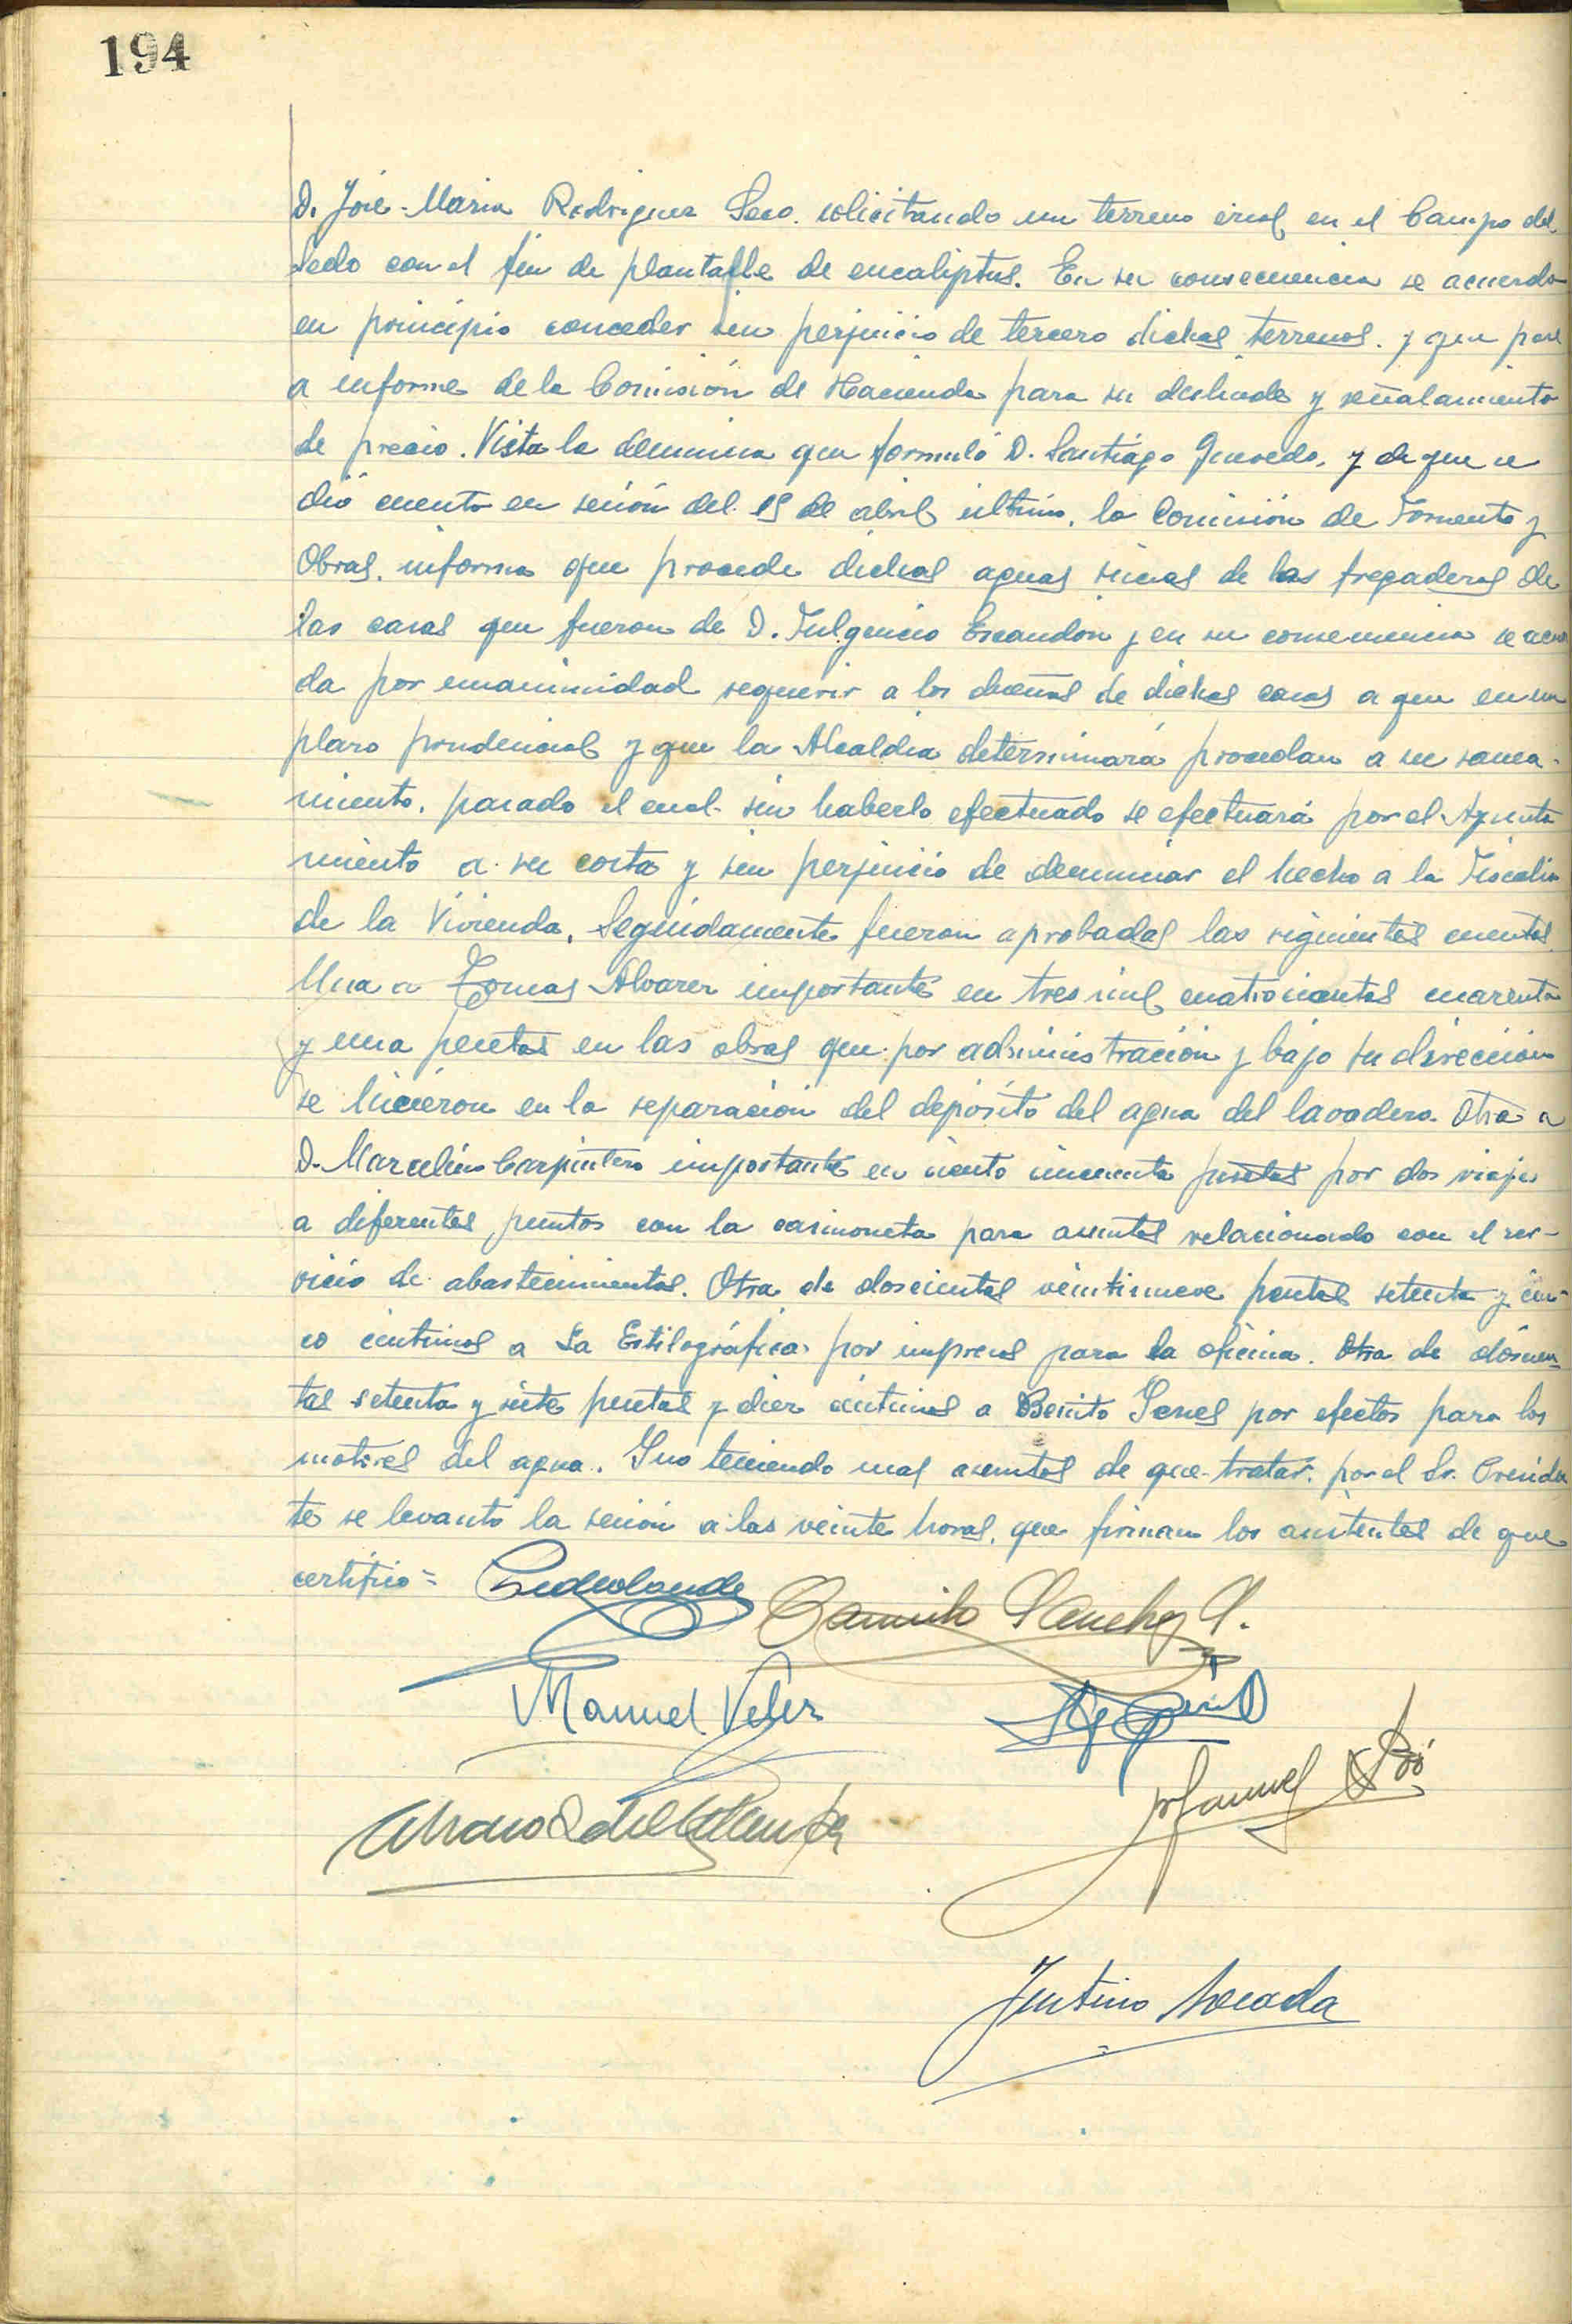 194
D. José-Maria Rodriguez Seco. solicitando un terreno erial en el Campo del
Sedo con el fin de plantarle de encaliptus. En su consecuencia se acuerda
en principio conceder sin perjuicio de tercero dichos terrenos. y que pase
a informe de la Comisión de Hacienda para su deslinde y señalamiento
de precio. Vista la denuncia que formuló D. Santiago Quevedo, y de que se
dió cuenta en sesión del 15 de abril último, la Comisión de Fomento y
Obras, informa que procede dichas aguas sucias de las fregaderas de
las casas que fueron de D. Fulgencio Escandón y en su consecuencia se acuer
da por unanimidad requerir a los dueños de dichas casas a que en un
plazo prudencial y que la Alcaldia determinará procedan a su sanea-
miento, pasado el cual sin haberlo efectuado se efectuará por el Ayunta
miento a su costa y sin perjuicio de denunciar el hecho a la Fiscalia
de la Vivienda. Seguidamente fueron aprobadas las siguientes cuentas.
Una a Tomas Alvarez importante en tres mil cuatrocientas cuarenta
y una pesetas en las obras que por administración y bajo su dirección
se hicieron en la reparación del depósito del agua del lavadero. Otra a
D. Marcelino Carpintero importante en ciento cincuenta pesetas por dos viajes
a diferentes puntos con la camioneta para asuntos relacionado con el ser-
vicio de abastecimientos. Otra de doscientas veintinueve pesetas setenta y cin-
co centimos a La Estilográfica por impresos para la oficina. Otra de doscien
tas setenta y siete pesetas y diez centimos a Benito Senes por efectos para los
motores del agua. Y no teniendo mas asuntos de que tratar, por el Sr. Presiden
te se levantó la sesión a las veinte horas, que firman los asistentes de que
certifico=
Camilo Sanchez
Manuel Velez
Manuel
Justino Losada